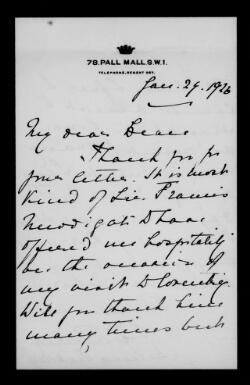 78. PALL MALL. S.W.1.
TELEPHONE, REGENT
Jan. 29. 1926
My dear Dean
Thank you for
your letter. It is most
kind of Sir Francis
Newdigate to have
offered me hospitality
on the occasion of
my visit to Coventry.
Will you thank him
many times but